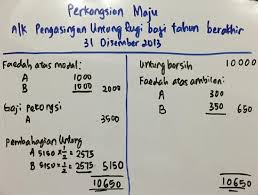 Perkongsian Maju
A/k Pengasingan Untung Rugi bagi tahun berakhir
31 Disember 2013
Faedah atas modal:
A 1000
B 1000 2000
Gaji Pekongsi
A 3500
Pembahagian Untung
A 5150 x 1/2 = 2575
B 5150 x 1/2 = 2575 5150
10650
Untung bersih 10000
Faedah atas ambilan:
A 300
B 350 650
10650